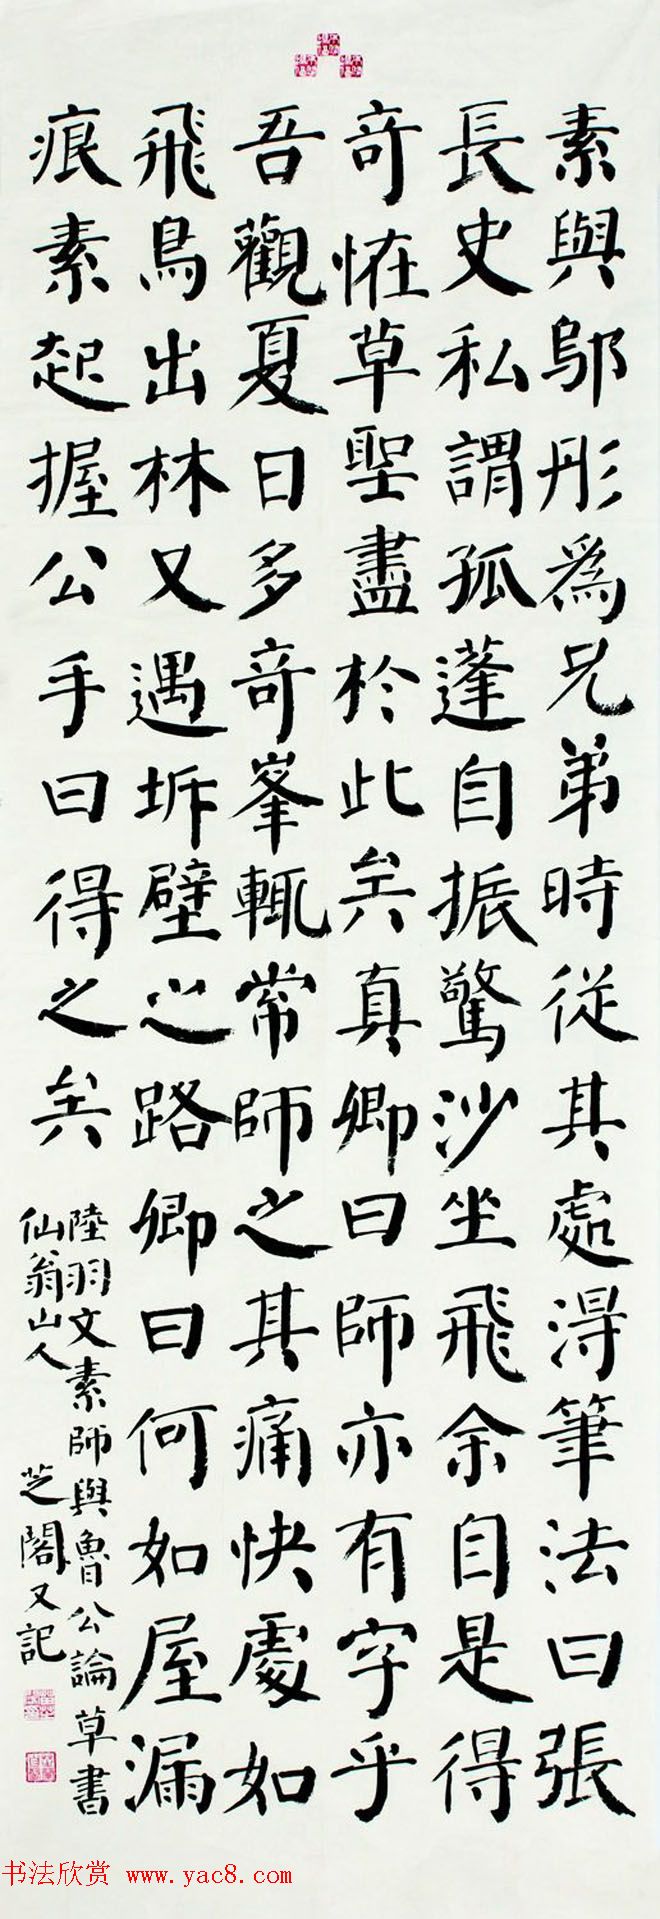 素與鄔彤為兄弟時從其處得筆法曰張
長史私謂孤蓬自振驚沙坐飛余自是得
奇怪草聖盡於此矣真卿曰師亦有字乎
吾觀夏日多奇峯輒常師之其痛快處如
飛鳥出林又遇坼壁之路卿曰何如屋漏
痕素起握公手曰得之矣
陸羽文素師與魯公論草書
仙翁山人 芝閣又記
书法欣赏 www.yac8.com